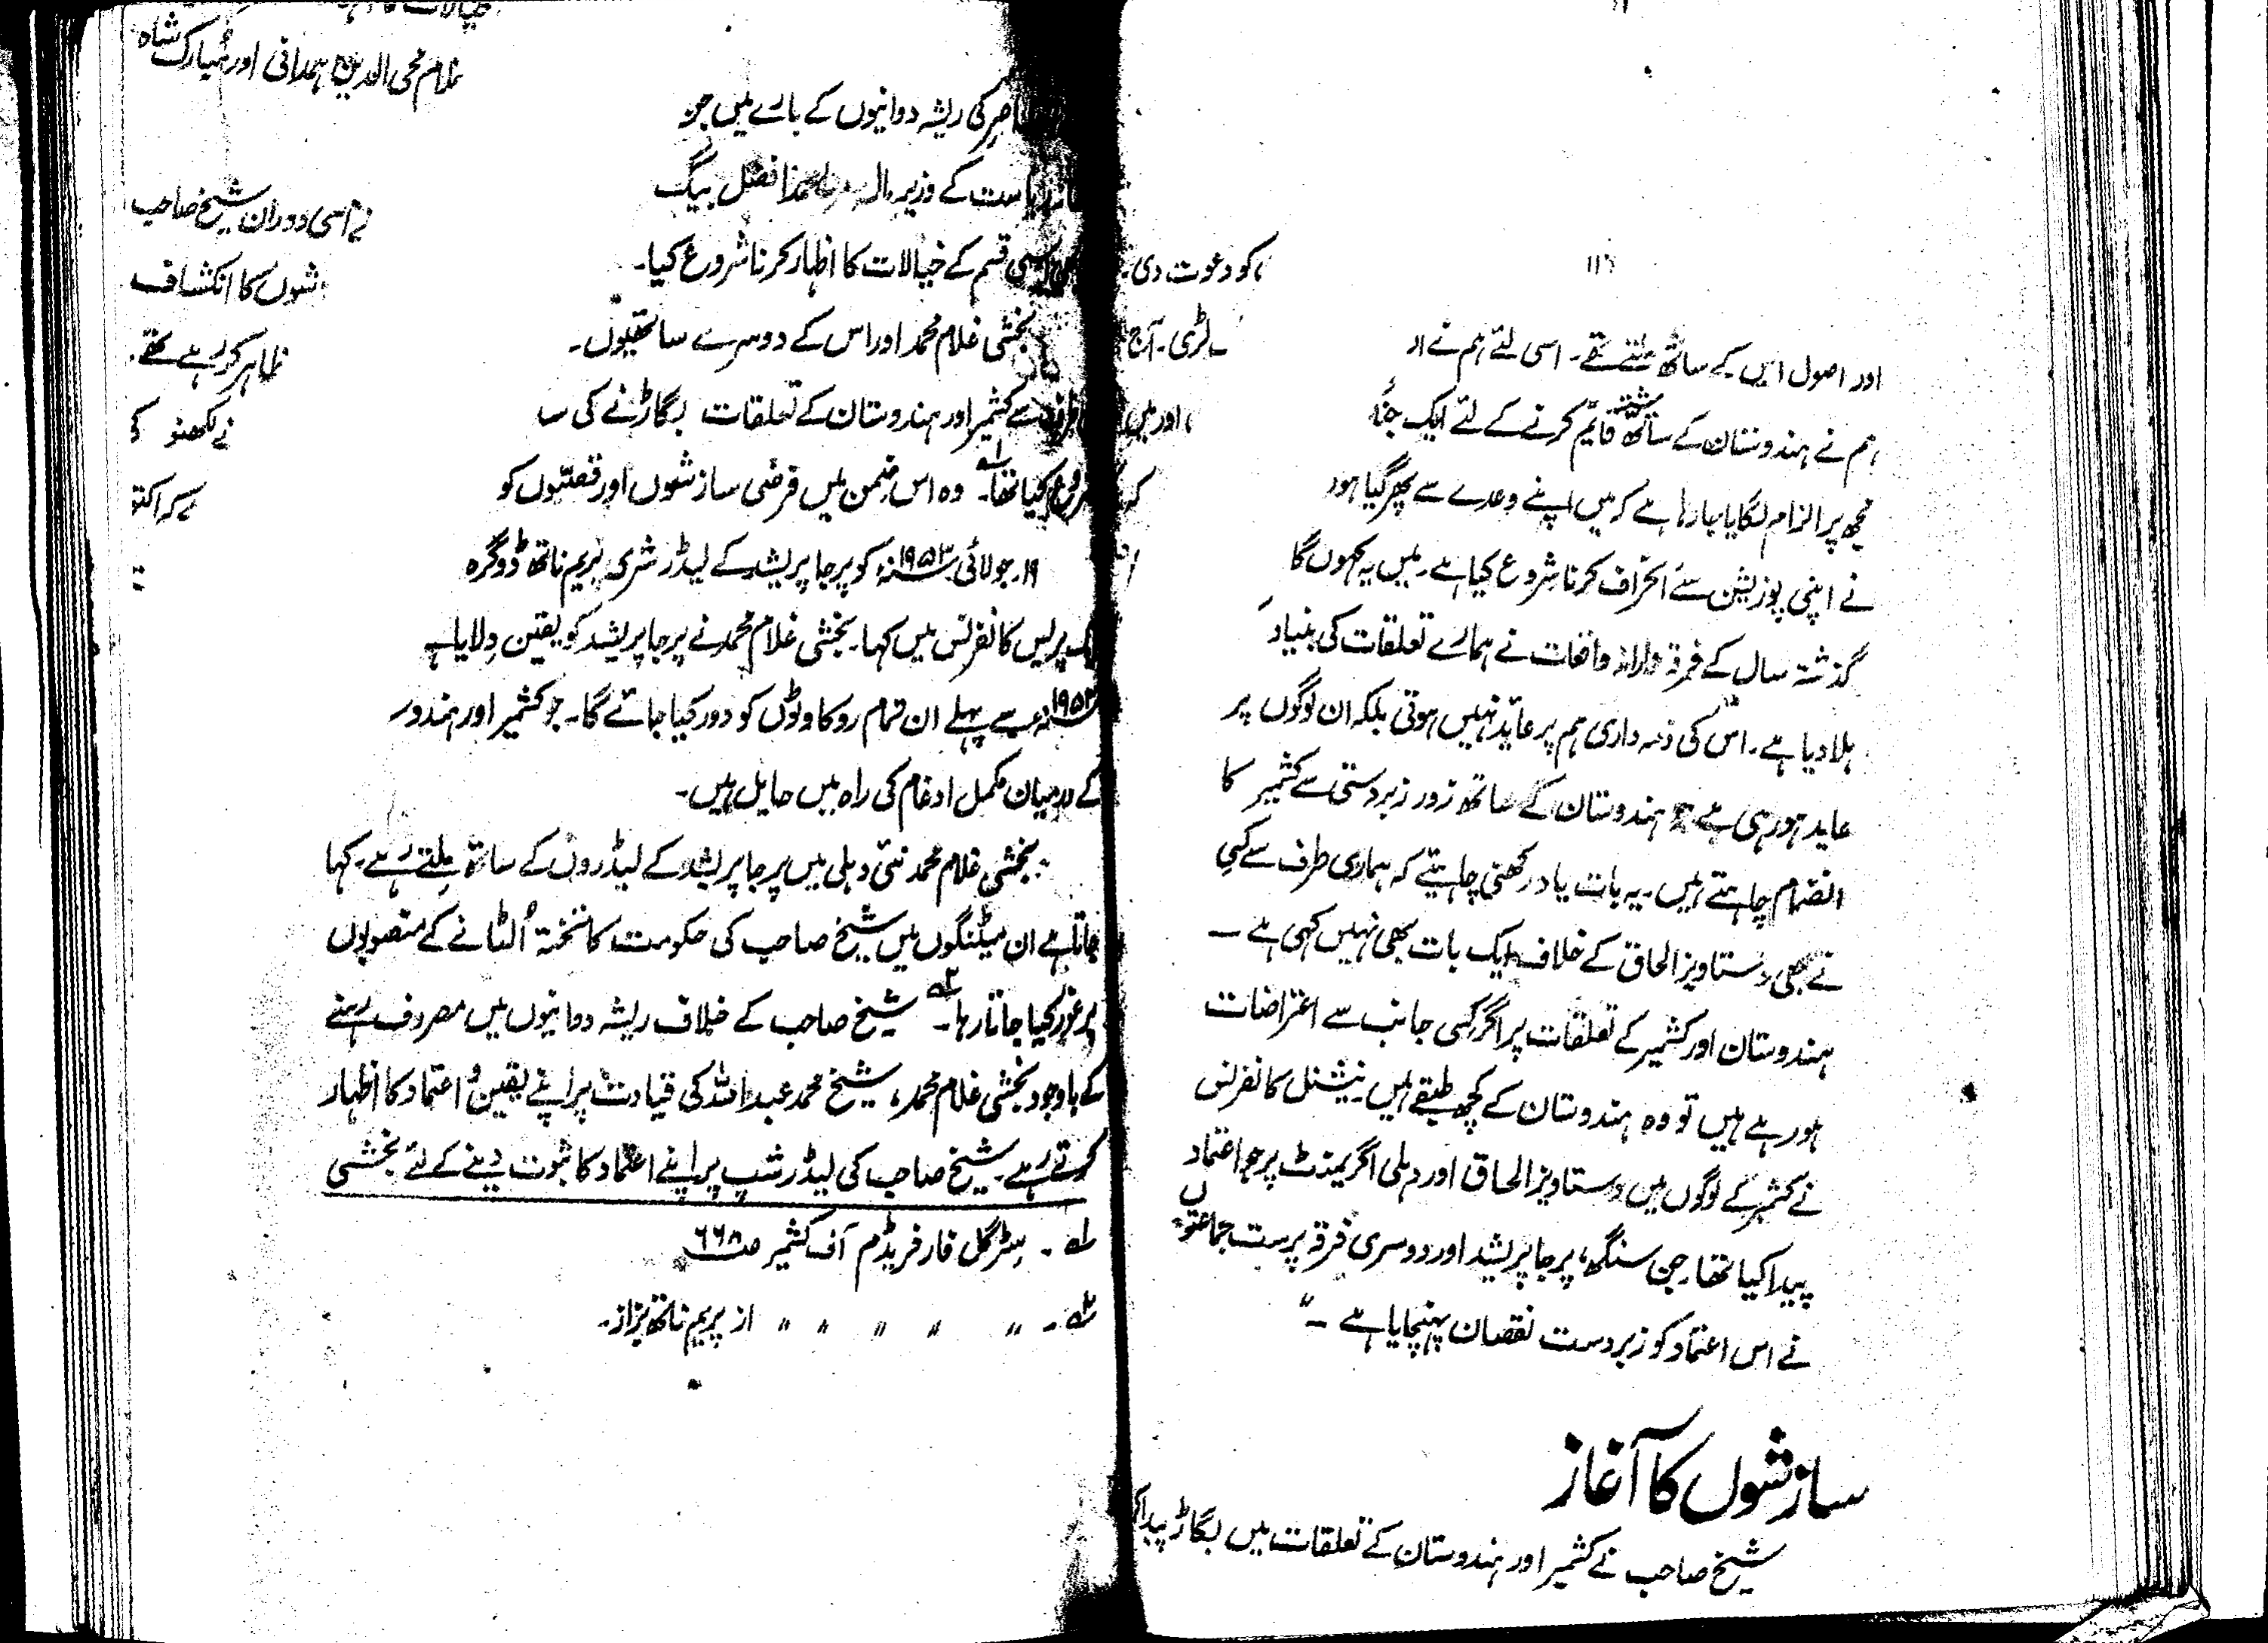 ۱۱۵
اور اصول اس کے ساتھ ملتے تھے۔ اسی لئے ہم نے
ہم نے ہندوستان کے ساتھ رشتہ قائم کرنے کے لئے ایک
مجھ پر الزام لگایا جا رہا ہے کہ میں اپنے وعدے سے پھر گیا ہوں
نے اپنی پوزیشن سے انحراف کرنا شروع کیا ہے۔ میں یہ کہوں گا
گذشتہ سال کے فرقہ وارانہ واقعات نے ہمارے تعلقات کی بنیاد
ہلا دیا ہے۔ اس کی ذمہ داری ہم پر عاید نہیں ہوتی بلکہ ان لوگوں پر
عاید ہو رہی ہے جو ہندوستان کے ساتھ زور زبردستی سے کشمیر کا
انضمام چاہتے ہیں۔ یہ بات یاد رکھنی چاہیئے کہ ہماری طرف سے کسی
نے بھی دستاویز الحاق کے خلاف ایک بات بھی نہیں کہی ہے ــ
ہندوستان اور کشمیر کے تعلقات پر اگر کسی جانب سے اعتراضات
ہو رہے ہیں تو وہ ہندوستان کے کچھ طبقے ہیں۔ نیشنل کانفرنس
نے کشمیر کے لوگوں میں دستاویز الحاق اور دہلی اگریمنٹ پر جو اعتماد
پیدا کیا تھا۔ جن سنگھ، پرجا پریشد اور دوسری فرقہ پرست جماعتوں
نے اس اعتماد کو زبردست نقصان پہنچایا ہے ــ"
سازشوں کا آغاز
شیخ صاحب نے کشمیر اور ہندوستان کے تعلقات میں بگاڑ پیدا
کو دعوت دی۔
لڑی۔ آج
اور میں
کی ریشہ دوانیوں کے بارے میں جن
ریاست کے وزیر افضل بیگ
اسی قسم کے خیالات کا اظہار کرنا شروع کیا۔
بخشی غلام محمد اور اس کے دوسرے ساتھیوں
سے کشمیر اور ہندوستان کے تعلقات بگاڑنے کی
شروع کیا تھا۔ ۱؎ وہ اس ضمن میں فرضی سازشوں اور قصّوں کو
۱۹۔ جولائی ۱۹۵۳ء کو پرجا پریشد کے لیڈر شری پریم ناتھ ڈوگرہ
ایک پریس کانفرنس میں کہا۔ بخشی غلام محمد نے پرجا پریشد کو یقین دلایا ہے
۱۹۵۳ء سے پہلے ان تمام روکاوٹوں کو دور کیا جائے گا۔ جو کشمیر اور
کے درمیان مکمل ادغام کی راہ میں حایل ہیں۔
بخشی غلام محمد نئی دہلی میں پرجا پریشد کے لیڈروں کے ساتھ ملتے رہے۔ کہا
جاتا ہے ان میٹنگوں میں شیخ صاحب کی حکومت کا تختہ اُلٹانے کے منصوبوں
پر غور کیا جاتا رہا۔ ۲؎ شیخ صاحب کے خلاف ریشہ دوانیوں میں مصروف رہنے
کے باوجود بخشی غلام محمد، شیخ محمد عبداللہ کی قیادت پر اپنے یقین و اعتماد کا اظہار
کرتے رہے۔ شیخ صاحب کی لیڈرشپ پر اپنے اعتماد کا ثبوت دینے کے لئے بخشی
۱؎ ۔ سٹرگل فار فریڈم آف کشمیر ص ۶۶۸
۲؎ ۔ " " " " " از پریم ناتھ بزاز۔
غلام محی الدین ہمدانی اور مبارک شاہ
اسی دوران شیخ صاحب
شوں کا انکشاف
ظاہر کر رہے تھے۔
نے لکھنو